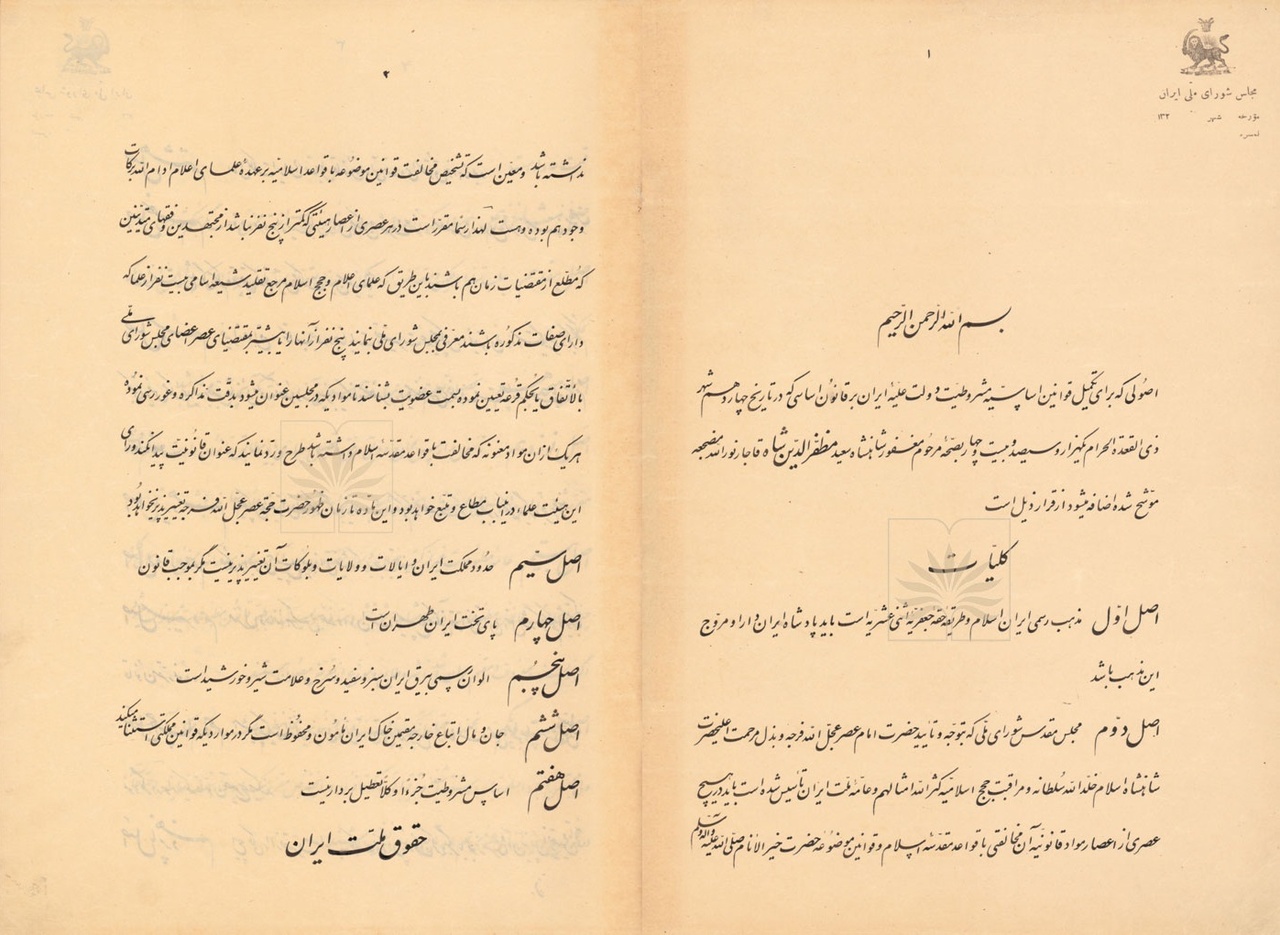 ۱
مجلس شورای ملّی ایران
مورخه شهر ۱۳۲
نمره
بسم الله الرّحمن الرّحیم
اصولی که برای تکمیل قوانین اساسیه مشروطیت دولت علیّه ایران بر قانون اساسی که در تاریخ چهاردهم شهر
ذی القعدة الحرام یکهزار و سیصد و بیست و چهار بصحّه مرحوم مغفور شاهنشاه سعید مظفرالدّین شاه قاجار نورالله مضجعه
موشّح شده اضافه میشود از قرار ذیل است
کلیّات
اصل اوّل مذهب رسمی ایران اسلام و طریقه حقه جعفریّه اثنی عشریه است باید پادشاه ایران دارا و مروّج
این مذهب باشد
اصل دوّم مجلس مقدس شورای ملّی که بتوجه و تایید حضرت امام عصر عجل الله فرجه و بذل مرحمت اعلیحضرت
شاهنشاه اسلام خلد الله سلطانه و مراقبت حجج اسلامیه کثر الله امثالهم و عامّه ملت ایران تأسیس شده است باید در هیچ
عصری از اعصار مواد قانونیه آن مخالفتی با قواعد مقدسه اسلام و قوانین موضوعه حضرت خیر الانام صلّی الله علیه و آله و سلم
۲
نداشته باشد و معین است که تشخیص مخالفت قوانین موضوعه با قواعد اسلامیه بر عهدهٔ علمای اعلام ادام الله برکات
وجودهم بوده و هست لهذا رسما مقرر است در هر عصری از اعصار هیئتی که کمتر از پنج نفر نباشد از مجتهدین و فقهای متدینین
که مطّلع از مقتضیات زمان هم باشند باین طریق که علمای اعلام و حجج اسلام مرجع تقلید شیعه اسامی بیست نفر از علما که
دارای صفات مذکوره باشند معرفی بمجلس شورای ملی نمایند پنج نفر از آنها را یا بیشتر بمقتضیای عصر اعضای مجلس شورای ملّی
بالاتّفاق یا بحکم قرعه تعیین نموده بسمت عضویت بشناسند تا موادیکه در مجلسین عنوان میشود بدقّت مذاکره و غور رسی نموده
هر یک از آن مواد معنونه که مخالفت با قواعد مقدسه اسلام داشته باشد طرح و ردّ نمایند که عنوان قانونیّت پیدا نکند و رای
این هیئت علماء در اینباب مطاع و متّبع خواهد بود و این مادّه تا زمان ظهور حضرت حجّة عصر عجّل الله فرجه تغییرپذیر نخواهد بود
اصل سیّم حدود مملکت ایران و ایالات و ولایات و بلوکات آن تغییرپذیر نیست مگر بموجب قانون
اصل چهارم پای تخت ایران طهران است
اصل پنجم الوان رسمی بیرق ایران سبز و سفید و سرخ و علامت شیر و خورشید است
اصل ششم جان و مال اتباع خارجه مقیمین خاک ایران مأمون و محفوظ است مگر در مواردیکه قوانین مملکتی استثنا میکند
اصل هفتم اساس مشروطیت جزءا و کلّا تعطیل بردار نیست
حقوق ملّت ایران